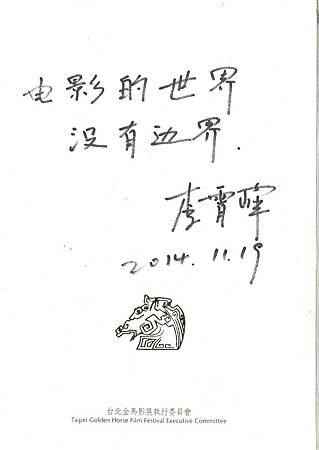 电影的世界
没有边界.
李霄峰
2014.11.19
台北金馬影展執行委員會
Taipei Golden Horse Film Festival Executive Committee